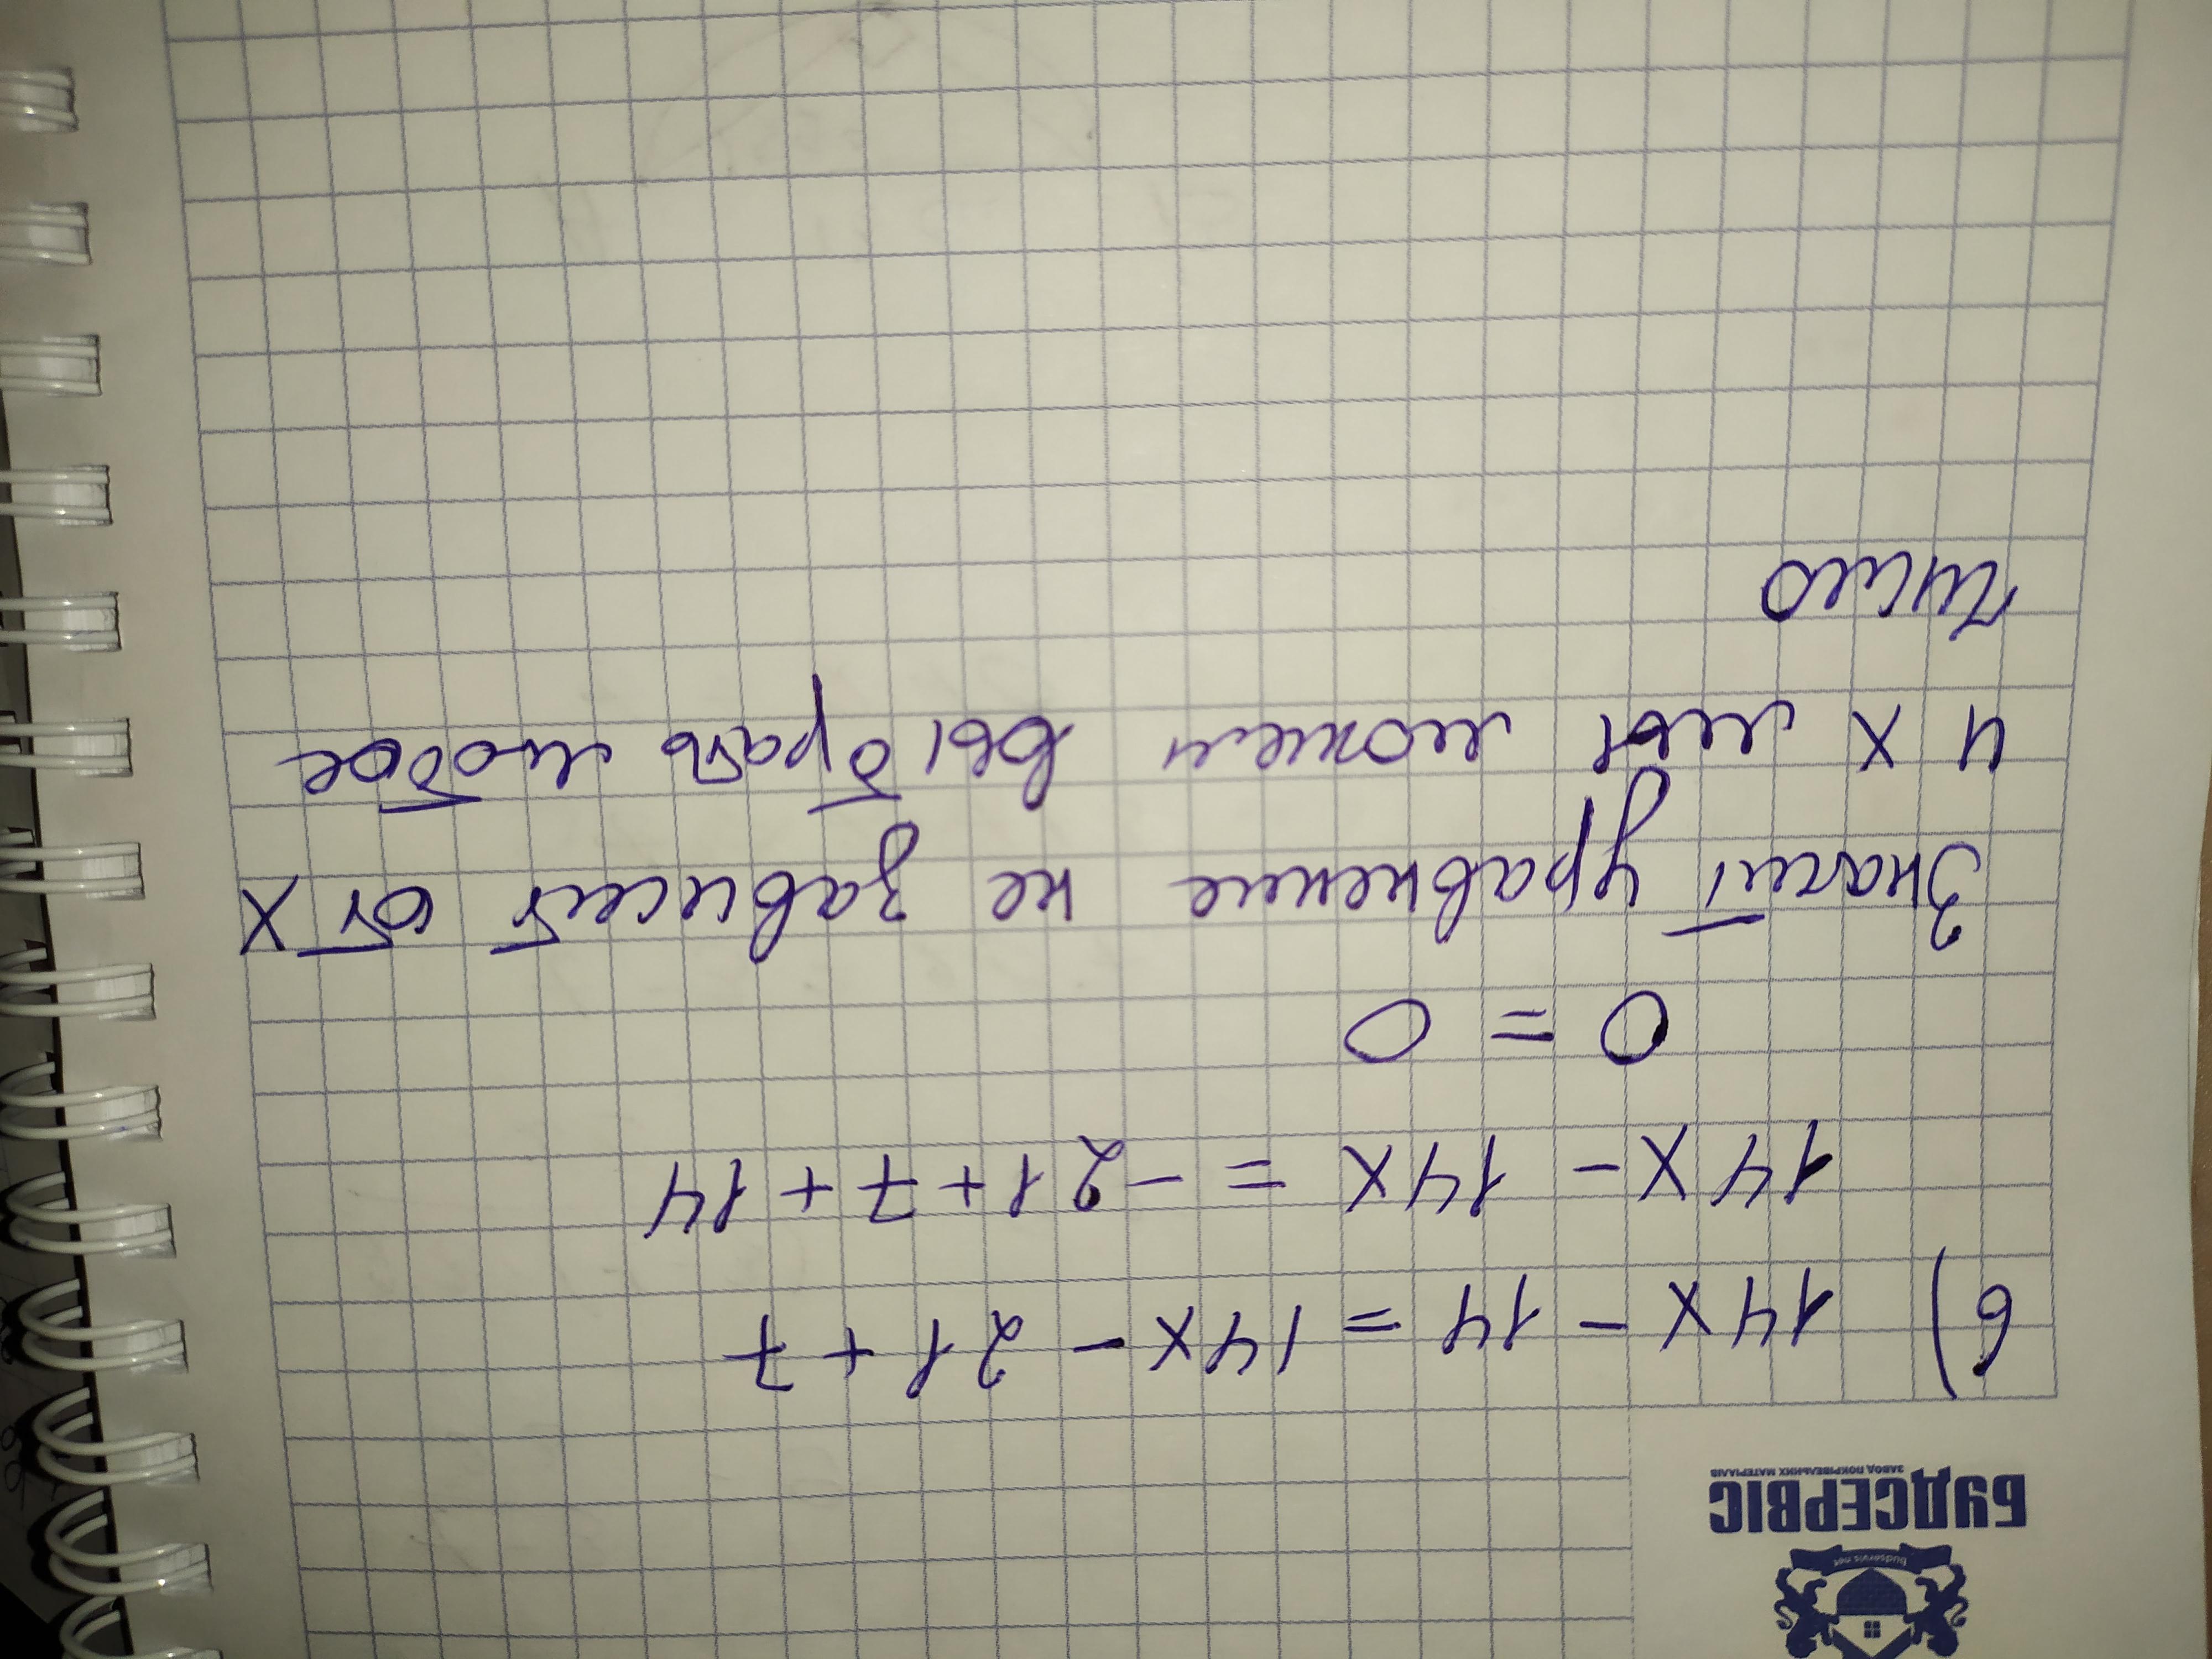 budservis.net
БУДСЕРВІС
ЗАВОД ПОКРІВЕЛЬНИХ МАТЕРІАЛІВ
6) 14x - 14 = 14x - 21 + 7
14x - 14x = -21 + 7 + 14
0 = 0
Значит уравнение не зависит от x
и x мы можем выбрать любое
число